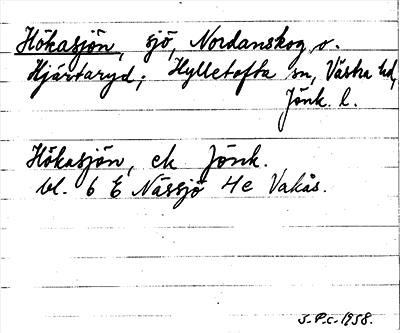 Hökasjön, sjö, Nordanskog o.
Hjärtaryd; Hylletofta sn, Västra hd,
Jönk. l.
Hökasjön, ek Jönk.
bl. 6 E Nässjö 4e Vakås.
S.P.c. 1958.